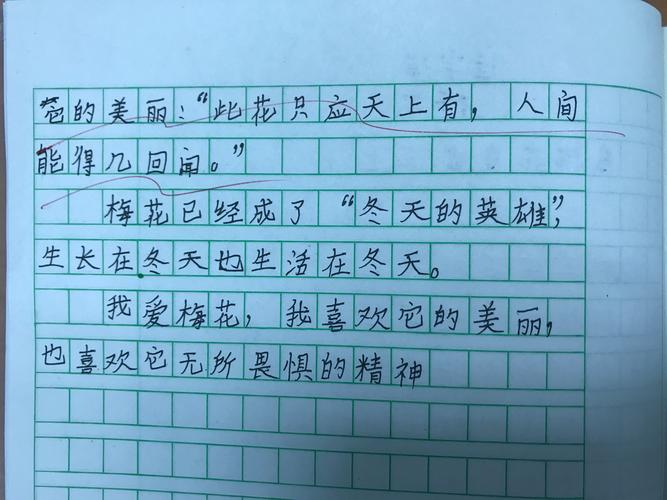 它的美丽：“此花只应天上有，人间
能得几回闻。”
梅花已经成了“冬天的英雄”，
生长在冬天也生活在冬天。
我爱梅花，我喜欢它的美丽，
也喜欢它无所畏惧的精神